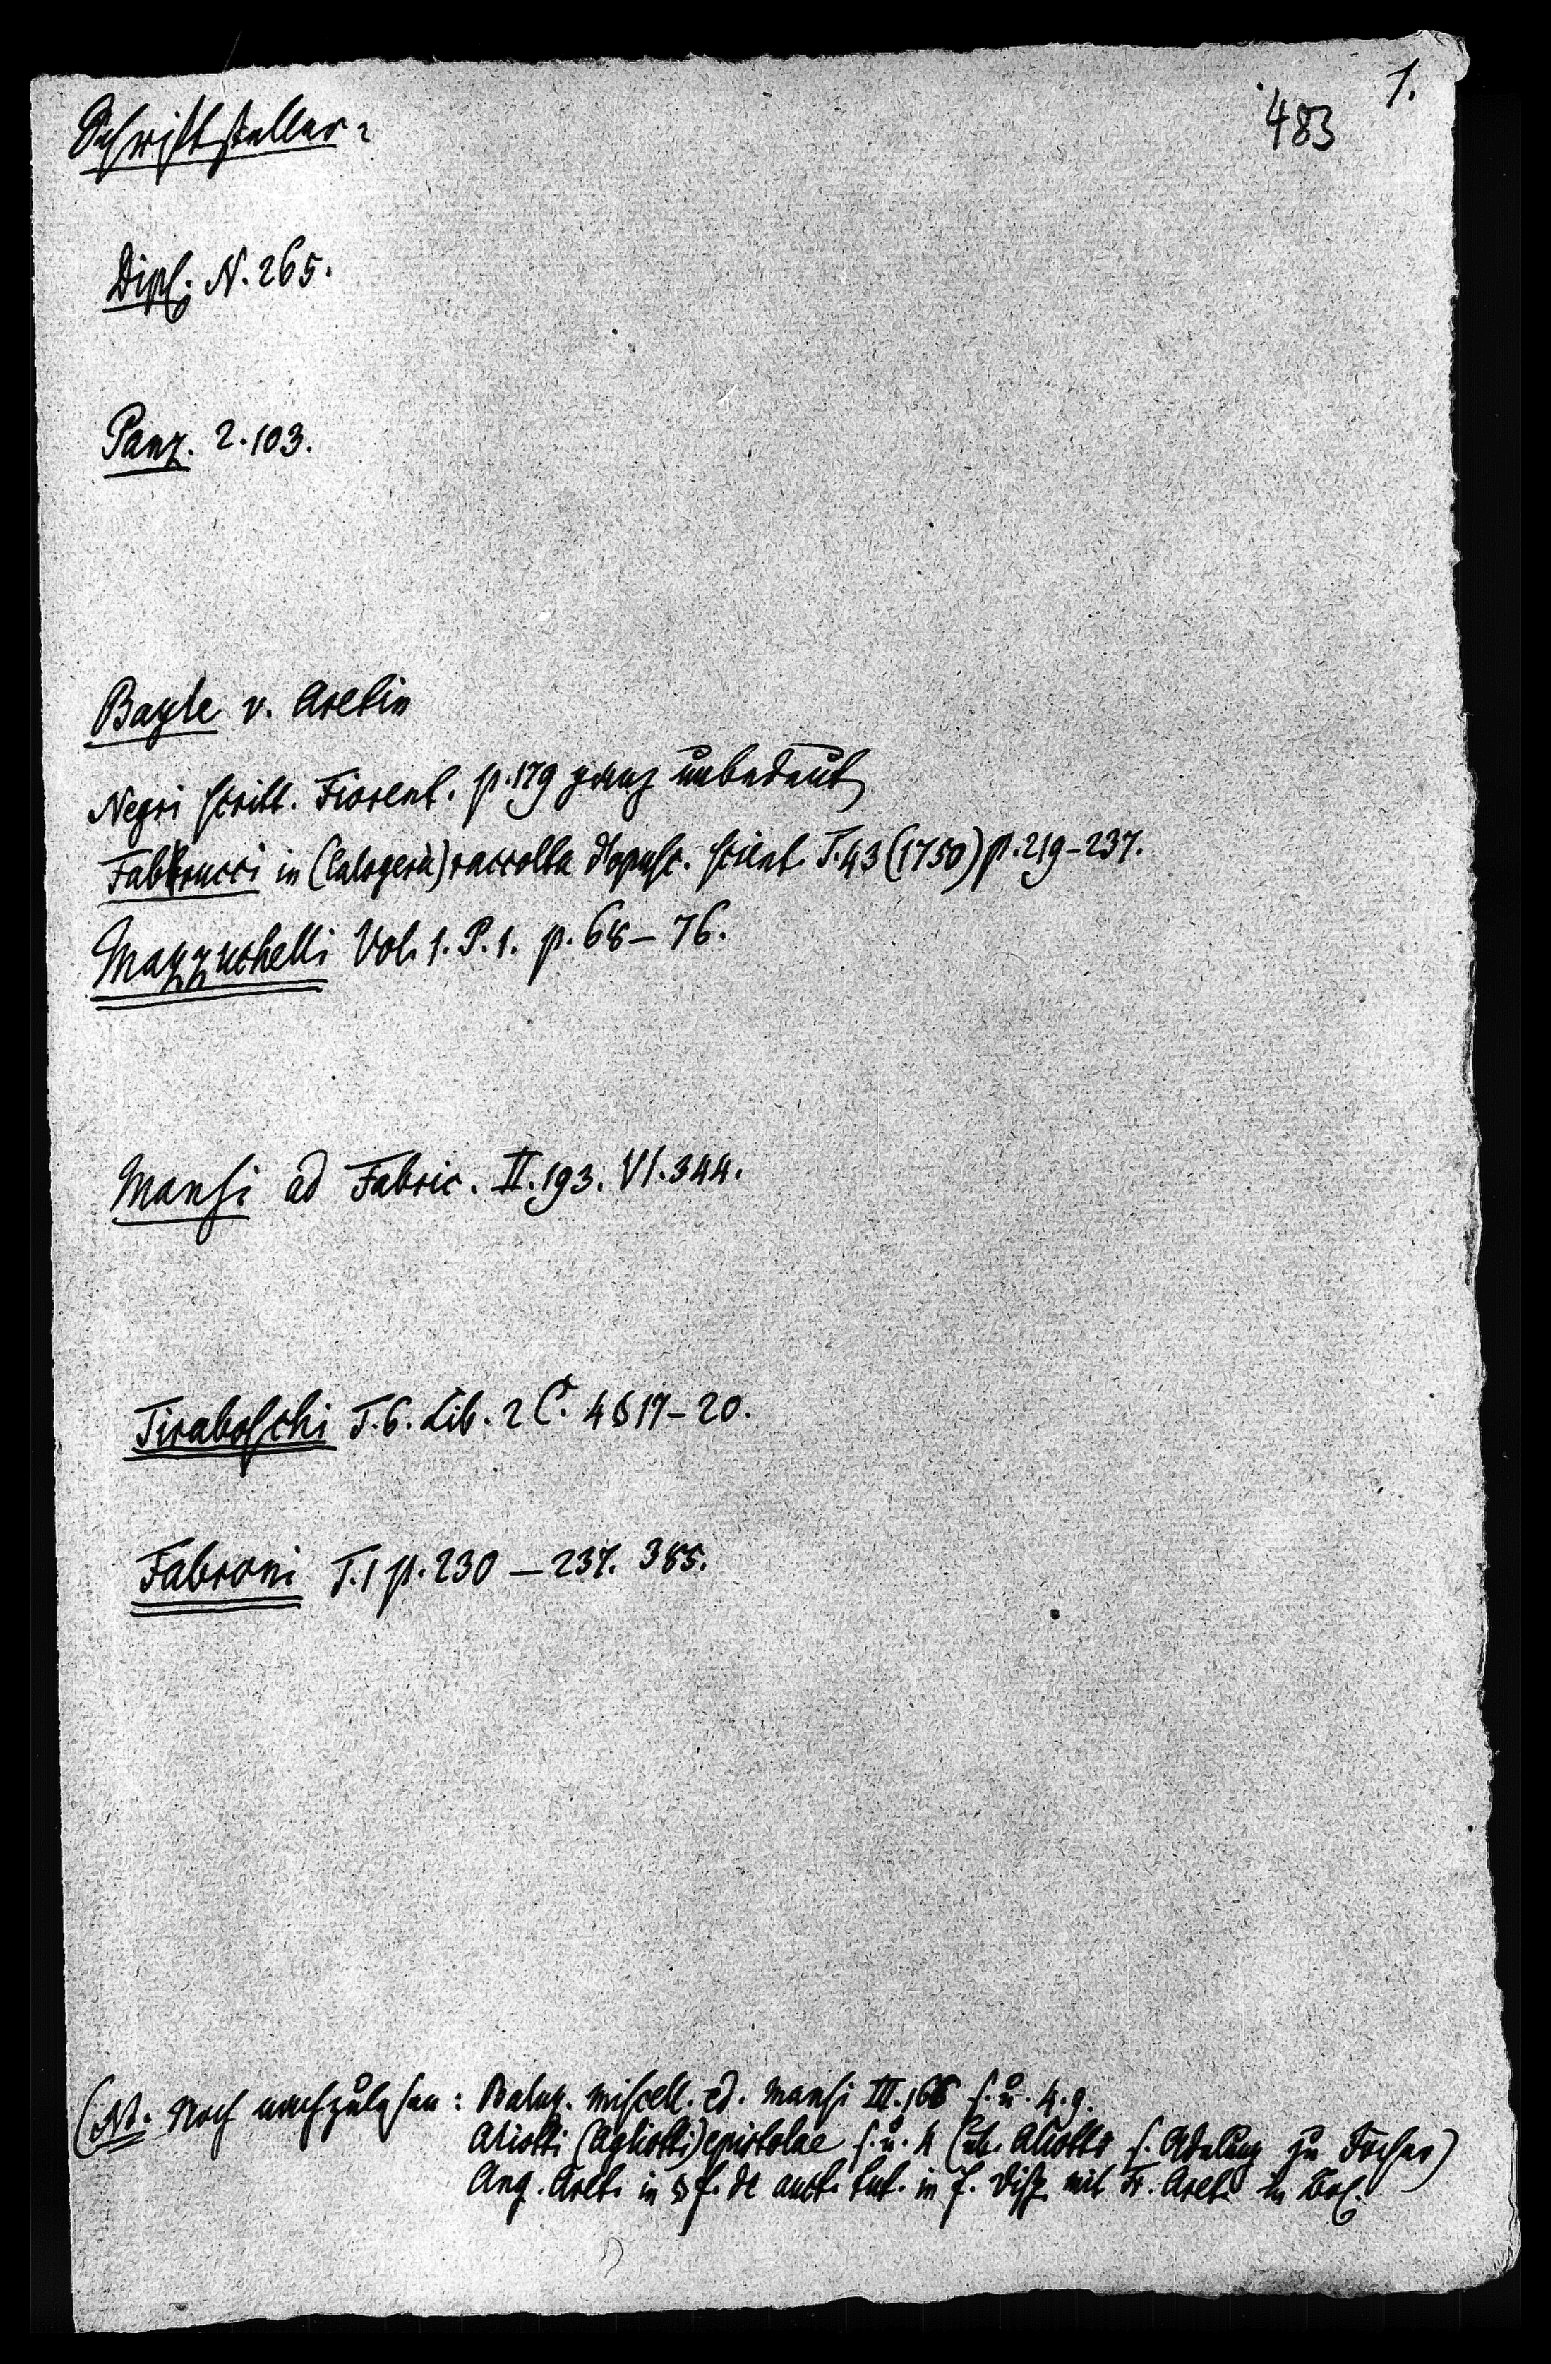 1.
483
Schriftsteller:
Dipl. N. 265.
Panz. 2. 103.
Bayle v. Aretin
Negri scritt. Fiorent. p. 179 ganz unbedeut.
Fabbrucci in (Calogerà) raccolta d'opusc. scient. T. 43 (1750) p. 219-237.
Mazzuchelli Vol. 1. P. 1. p. 68-76.
Mansi ad Fabric. II. 193. VI. 344.
Tiraboschi T. 6. Lib. 2 C. 4 § 17-20.
Fabroni T. 1 p. 230-237. 385.
(Nb. Noch nachzulesen: Baluz. miscell. ed. Mansi III. 168 s. u. 4. 9.
Aliotti (Agliotti) epistolae s. u. 4 (üb. Aliotti s. Adelung zu Jöcher)
Ang. Aret. in § f. de auct. tut. in f. Disp. mit Fr. Aret. in Bol.